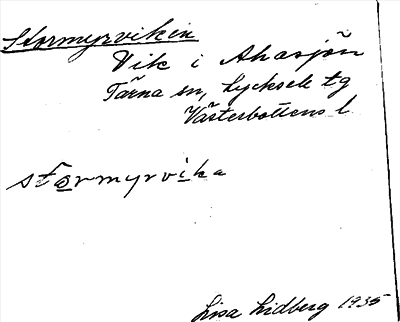 Stormyrviken
Vik i Ahasjön
Tärna sn, Lycksele tg
Västerbottens l.
stormyrvika
Lisa Lidberg 1935